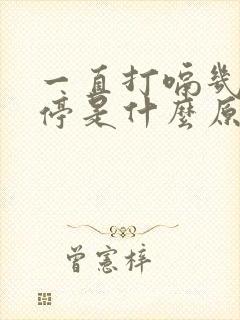 一直打嗝幾
停是什麼原
曾憲梓